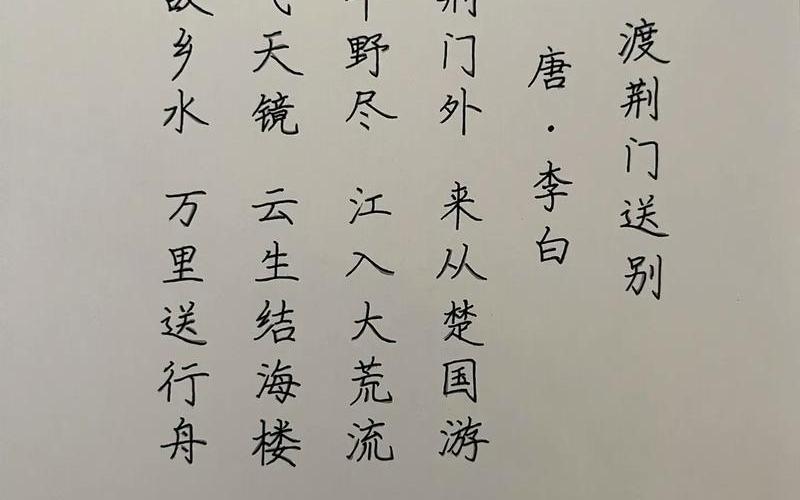 渡荆门送别
唐·李白
荆门外 来从楚国游
野尽 江入大荒流
天镜 云生结海楼
故乡水 万里送行舟